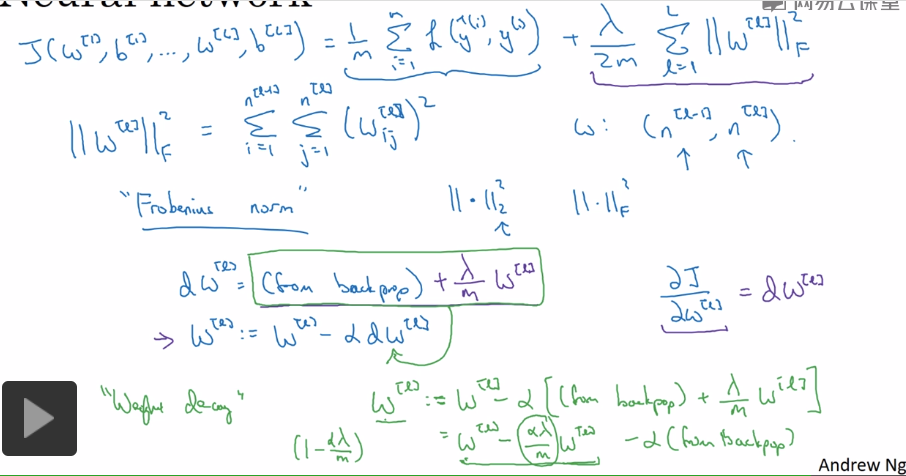 Neural network
网易云课堂
J(w^[1], b^[1], ..., w^[L], b^[L]) = 1/m Σ_{i=1}^{n} L(ŷ^(i), y^(i)) + λ/2m Σ_{l=1}^{L} ||w^[l]||_F^2
||w^[l]||_F^2 = Σ_{i=1}^{n^[l-1]} Σ_{j=1}^{n^[l]} (w_ij^[l])^2    w: (n^[l-1], n^[l]).
"Frobenius norm"    ||·||_2^2    ||·||_F^2
dw^[l] = (from backprop) + λ/m w^[l]    ∂J/∂w^[l] = dw^[l]
→ w^[l] := w^[l] - α dw^[l]
"Weight decay"    w^[l] := w^[l] - α [(from backprop) + λ/m w^[l]]
(1 - αλ/m)    = w^[l] - αλ/m w^[l] - α (from backprop)
Andrew Ng